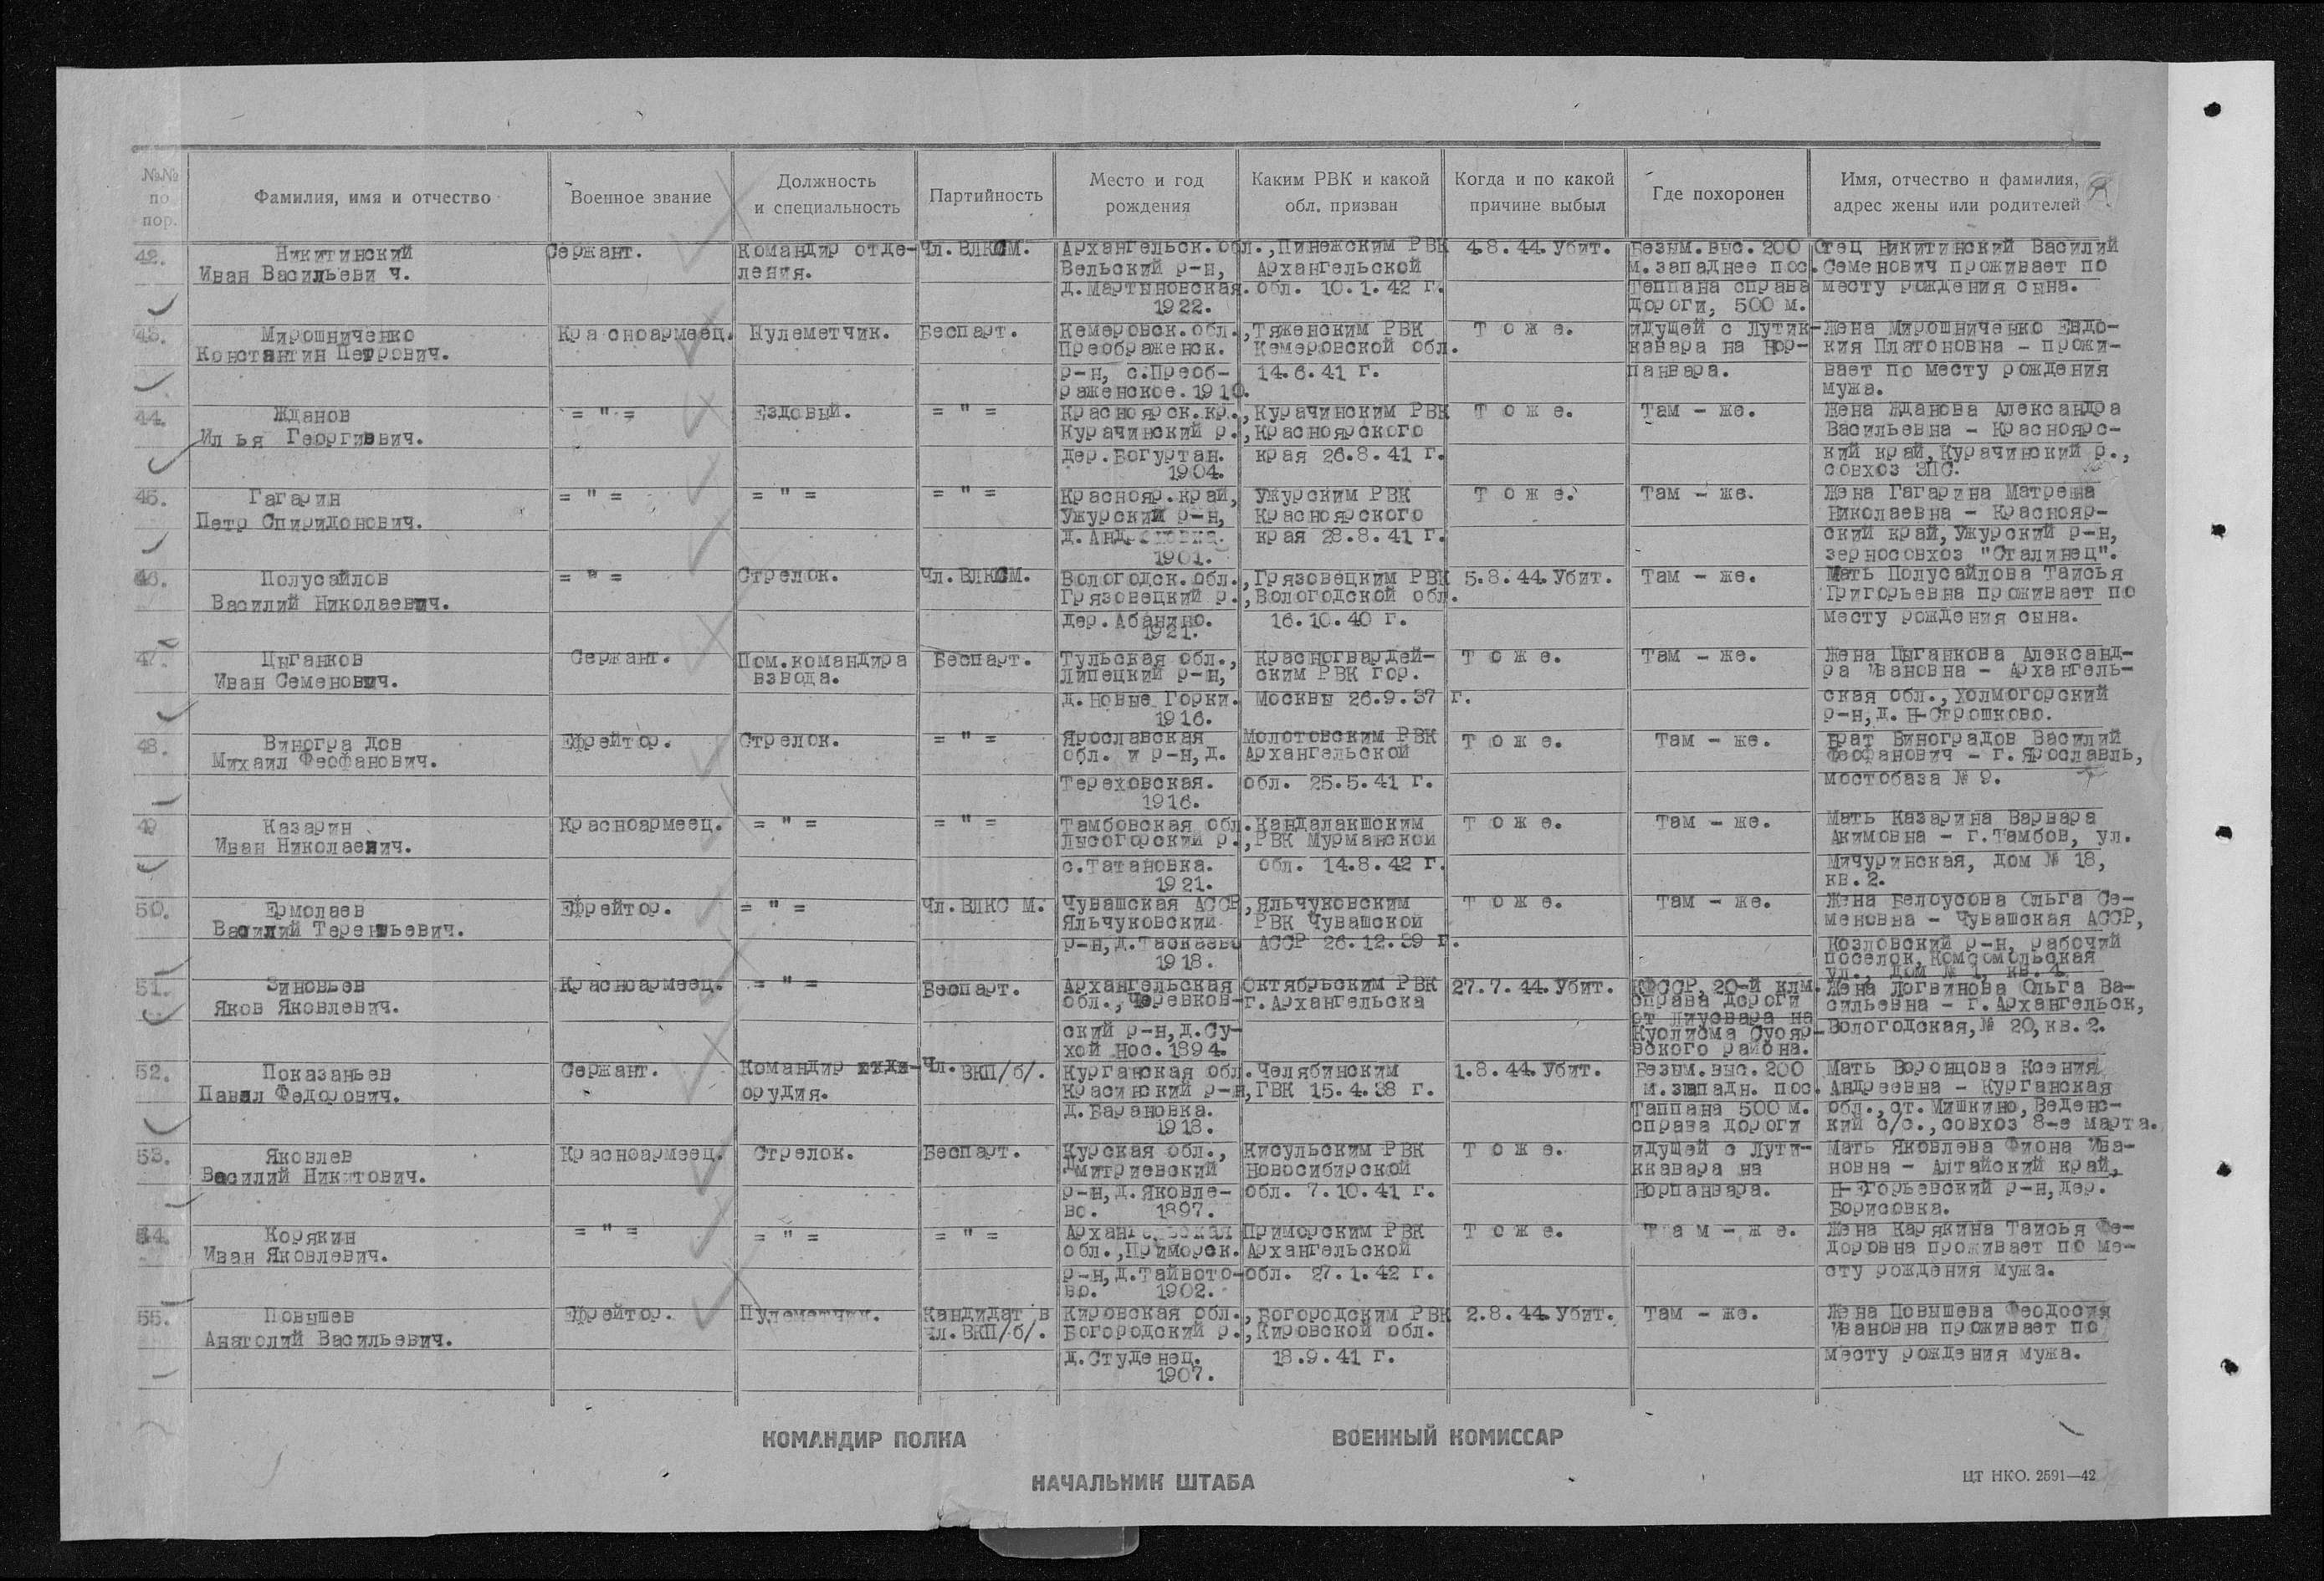 №№ по пор.
Фамилия, имя и отчество
Военное звание
Должность и специальность
Партийность
Место и год рождения
Каким РВК и какой обл. призван
Когда и по какой причине выбыл
Где похоронен
Имя, отчество и фамилия, адрес жены или родителей
42. Никитинский Сержант. Командир отде- Чл. ВЛКСМ. Архангельск. обл., Пинежским РВК 4.8.44. Убит. Безым. выс. 200 Отец Никитинский Василий
Иван Васильеви ч. ления. Вельский р-н, Архангельской м. западнее пос. Семенович проживает по
д. Мартыновская. обл. 10.1.42 г. Теппана справа месту рождения сына.
1922. дороги, 500 м.
43. Мирошниченко Красноармеец. Пулеметчик. Беспарт. Кемеровск. обл., Тяженским РВК Т о ж е. идущей с Лутик- Жена Мирошниченко Евдо-
Константин Петрович. Преображенск. Кемеровской обл. кавара на Нор- кия Платоновна - прожи-
р-н, с. Преоб- 14.6.41 г. панвара. вает по месту рождения
раженское. 1910. мужа.
44. Жданов = " = Ездовый. = " = Красноярск. кр., Курачинским РВК Т о ж е. Там - же. Жена Жданова Александра
Илья Георгиевич. Курачинский р., Красноярского Васильевна - Красноярс-
дер. Богуртан. края 26.8.41 г. кий край, Курачинский р.,
1904. совхоз ЗПС.
45. Гагарин = " = = " = = " = Краснояр. край, Ужурским РВК Т о ж е. Там - же. Жена Гагарина Матрена
Петр Спиридонович. Ужурский р-н, Красноярского Николаевна - Краснояр-
д. края 28.8.41 г. ский край, Ужурский р-н,
1901. зерносовхоз "Сталинец".
46. Полусайлов = " = Стрелок. Чл. ВЛКСМ. Вологодск. обл., Грязовецким РВК 5.8.44. Убит. Там - же. Мать Полусайлова Таисья
Василий Николаевич. Грязовецкий р., Вологодской обл. Григорьевна проживает по
дер. Абанино. 16.10.40 г. месту рождения сына.
1921.
47. Цыганков Сержант. Пом. командира Беспарт. Тульская обл., Красногвардей- Т о ж е. Там - же. Жена Цыганкова Александ-
Иван Семенович. взвода. Липецкий р-н, ским РВК гор. ра Ивановна - Архангель-
д. Новые Горки. Москвы 26.9.37 г. ская обл., Холмогорский
1916. р-н, д. Н-Строшково.
48. Виногра дов Ефрейтор. Стрелок. = " = Ярославская Молотовским РВК Т о ж е. Там - же. Брат Виноградов Василий
Михаил Феофанович. обл. и р-н, д. Архангельской Феофанович - г. Ярославль,
Тереховская. обл. 25.5.41 г. мостобаза № 9.
1916.
49 Казарин Красноармеец. = " = = " = Тамбовская обл. Кандалакшским Т о ж е. Там - же. Мать Казарина Варвара
Иван Николаевич. Лысогорский р., РВК Мурманской Акимовна - г. Тамбов, ул.
с. Татановка. обл. 14.8.42 г. Мичуринская, дом № 18,
1921. кв. 2.
50. Ермолаев Ефрейтор. = " = Чл. ВЛКС М. Чувашская АССР, Яльчуковским Т о ж е. Там - же. Жена Белоусова Ольга Се-
Василий Терентьевич. Яльчуковский РВК Чувашской меновна - Чувашская АССР,
р-н, д. Таскаево АССР 26.12.39 г. Козловский р-н, рабочий
1918. поселок, Комсомольская
ул., дом № 1, кв. 4.
51. Зиновьев Красноармеец. = " = Беспарт. Архангельская Октябрьским РВК 27.7.44. Убит. КФССР, 20-й клм. Жена Логвинова Ольга Ва-
Яков Яковлевич. обл., Черевков- г. Архангельска справа дороги сильевна - г. Архангельск,
от Лиусвара на
ский р-н, д. Су- Куолисма Суояр- Вологодская, № 20, кв. 2.
хой Нос. 1894. вского района.
52. Показаньев Сержант. Командир Чл. ВКП/б/. Курганская обл. Челябинским 1.8.44. Убит. Безым. выс. 200 Мать Воронцова Ксения
Павел Федорович. орудия. Красинский р-н, ГВК 15.4.38 г. м. западн. пос. Андреевна - Курганская
д. Барановка. Таппана 500 м. обл., ст. Мишкино, Веденс-
1918. справа дороги кий с/с., совхоз 8-е марта.
53. Яковлев Красноармеец. Стрелок. Беспарт. Курская обл., Кисульским РВК Т о ж е. идущей с Лути- Мать Яковлева Фиона Ива-
Василий Никитович. Дмитриевский Новосибирской ккавара на новна - Алтайский край,
р-н, д. Яковле- обл. 7.10.41 г. Норпанвара. Н-Егорьевский р-н, дер.
во. 1897. Борисовка.
54. Корякин = " = = " = = " = Архангельская Приморским РВК Т о ж е. Т а м - ж е. Жена Карякина Таисья Фе-
Иван Яковлевич. обл., Приморск. Архангельской доровна проживает по ме-
р-н, д. Тайвото- обл. 27.1.42 г. сту рождения мужа.
во. 1902.
55. Повышев Ефрейтор. Пулеметчик. Кандидат в Кировская обл., Богородским РВК 2.8.44. Убит. Там - же. Жена Повышева Феодосия
Анатолий Васильевич. чл. ВКП/б/. Богородский р., Кировской обл. Ивановна проживает по
д. Студенец. 18.9.41 г. месту рождения мужа.
1907.
КОМАНДИР ПОЛКА ВОЕННЫЙ КОМИССАР
НАЧАЛЬНИК ШТАБА
ЦТ НКО. 2591—42